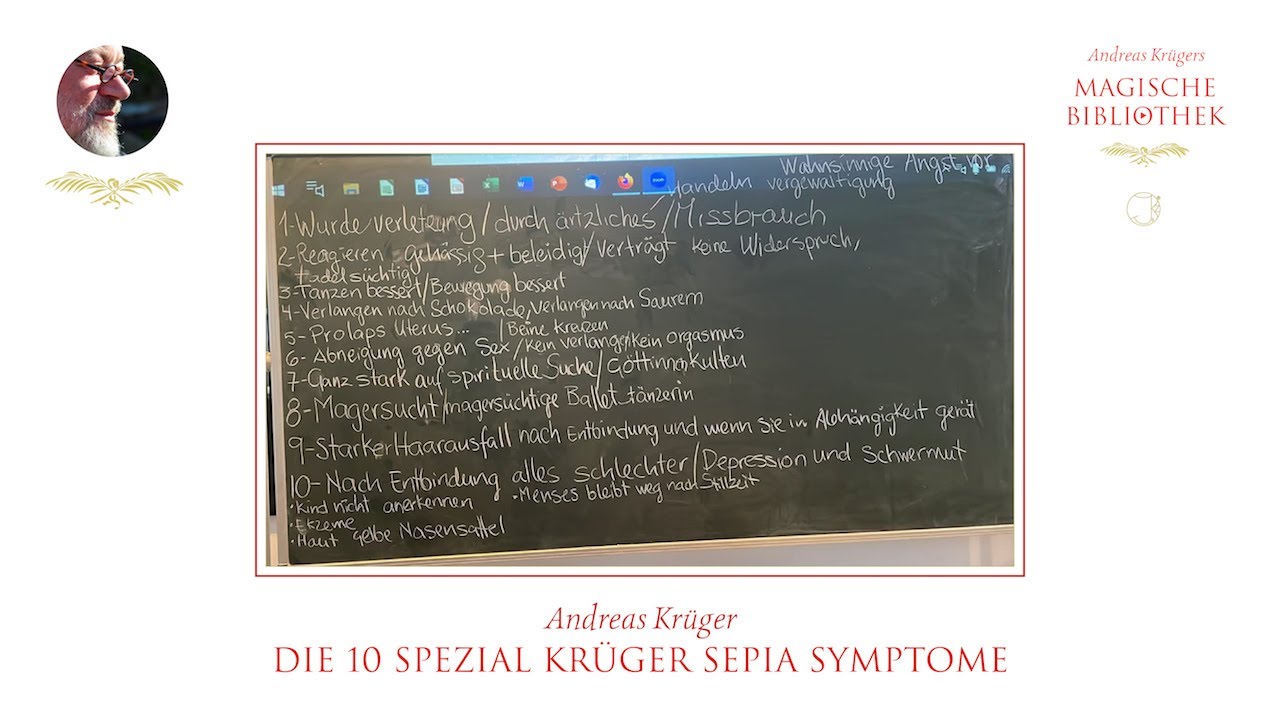 Andreas Krügers
MAGISCHE
BIBLIOTHEK
Wahnsinnige Angst vor
Handeln vergewaltigung
1-Wurdeverletzung/durch ärtzliches/Missbrauch
2-Reagieren gehässig + beleidigt/verträgt keine Widerspruch,
tadelsüchtig
3-Tanzen bessert/Bewegung bessert
4-Verlangen nach Schokolade, Verlangen nach Saurem
5- Prolaps Uterus... /Beine kreuzen
6- Abneigung gegen Sex/kein verlangen/kein orgasmus
7-Ganz stark auf spirituelle Suche/Göttinnen Kulten
8-Magersucht/magersüchtige Ballet-tänzerin
9-Starker Haarausfall nach Entbindung und wenn Sie in Abhängigkeit gerät
10- Nach Entbindung alles schlechter/Depression und Schwermut
•Kind nicht anerkennen •Menses bleibt weg nach Stillzeit
•Ekzeme
•Haut gelbe Nasensattel
Andreas Krüger
DIE 10 SPEZIAL KRÜGER SEPIA SYMPTOME